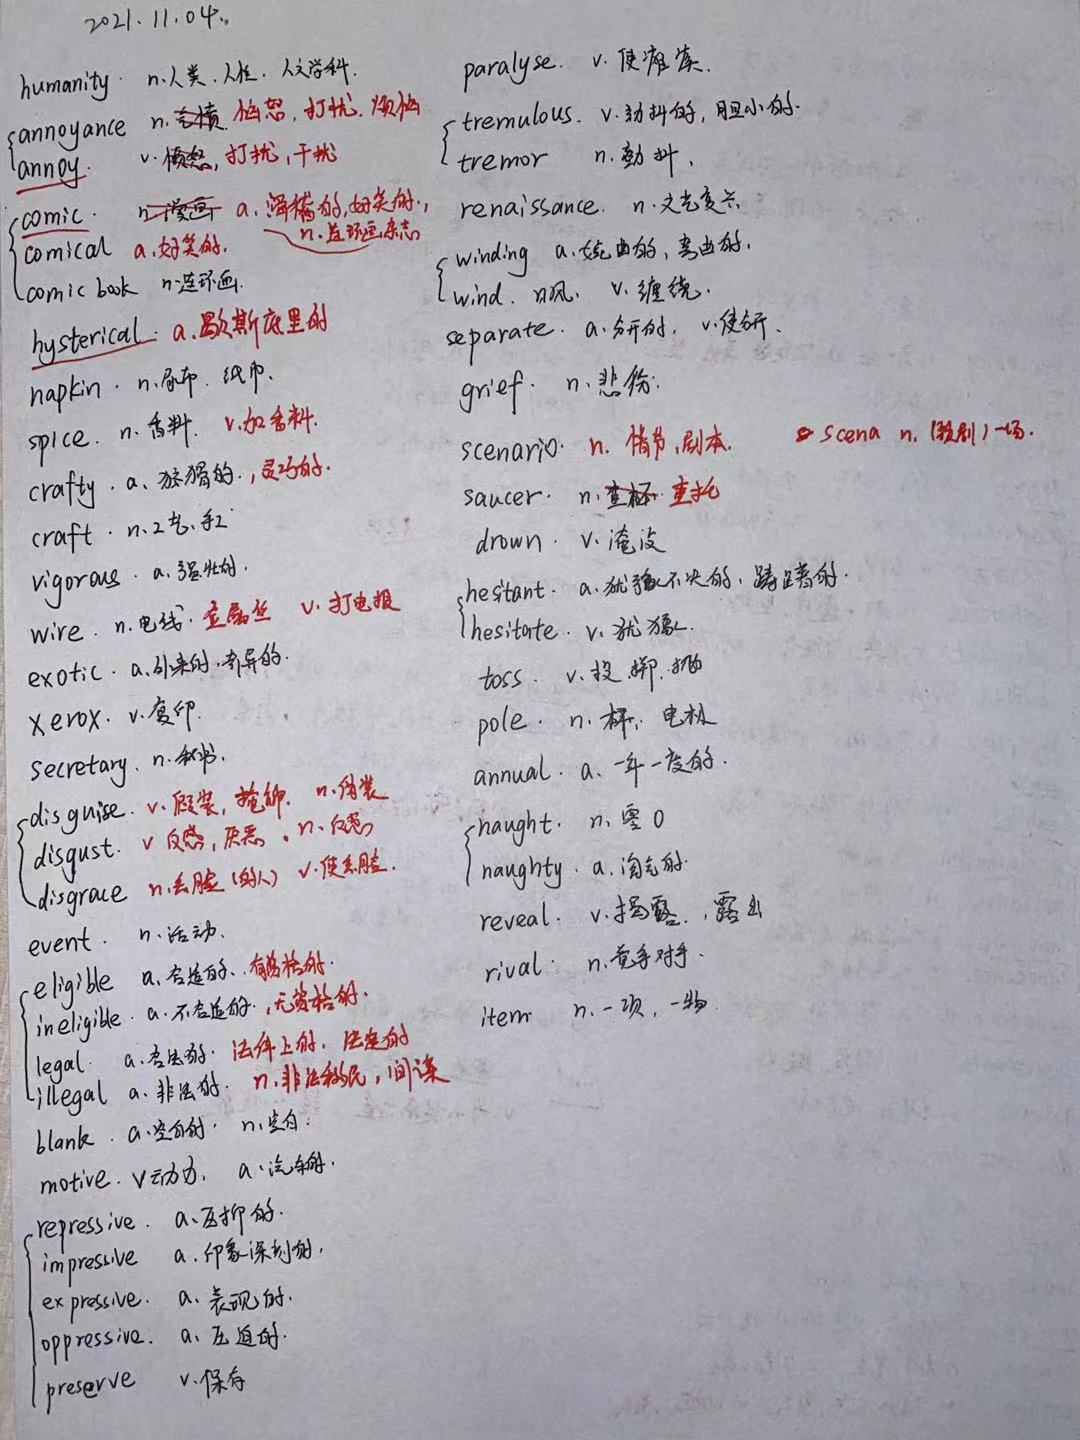 2021.11.04.
humanity. n.人类.人性.人文学科.
annoyance n.气愤 恼怒,打扰.烦恼
annoy. v.愤怒,打扰,干扰
comic. n.漫画 a.滑稽的,好笑的.,
n.连环画杂志
comical a.好笑的.
comic book n.连环画.
hysterical. a.歇斯底里的
napkin. n.尿布.纸巾.
spice. n.香料. v.加香料.
crafty. a.狡猾的.,灵巧的.
craft. n.工艺.手工
vigorous. a.强壮的.
wire. n.电线.金属丝 v.打电报
exotic. a.外来的,奇异的.
xerox. v.复印.
secretary. n.秘书.
disguise. v.假装,掩饰. n.伪装
disgust. v 反感,厌恶. n.反感
disgrace n.丢脸(的人) v.使丢脸.
event. n.活动.
eligible a.合适的、有资格的.
ineligible. a.不合适的.,无资格的.
legal. a.合法的.法律上的,法定的
illegal a.非法的. n.非法移民,间谍
blank. a.空白的. n.空白.
motive. v动力. a.汽车的.
repressive. a.压抑的.
impressive a.印象深刻的,
expressive. a.表现的.
oppressive. a.压迫的.
preserve v.保存
paralyse. v.使瘫痪.
tremulous. v.动抖的,胆小的.
tremor n.颤抖,
renaissance. n.文艺复兴
winding a.蜿曲的,弯曲的.
wind. n风. v.缠绕.
separate. a.分开的. v.使分开.
grief. n.悲伤.
scenario. n.情节,剧本. scena n.(歌剧)一场.
saucer. n.查杯 查托
drown. v.淹没
hesitant. a.犹豫不决的,踌躇的.
hesitate. v.犹豫.
toss. v.投.掷.抛
pole. n.杆, 电极
annual. a.一年一度的.
naught. n.零0
naughty. a.淘气的.
reveal. v.揭露.,露出
rival. n.竞争对手.
item n.一项,一物.